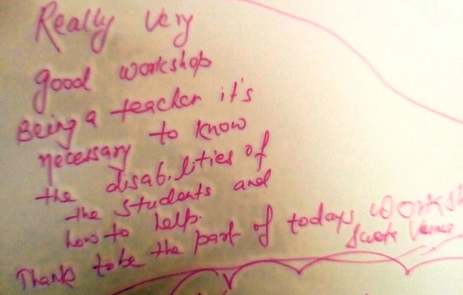 Really very
good workshop
Being a teacher it's
necessary to know
the disabilities of
the students and
how to help.
Thanks to be the part of todays worksh